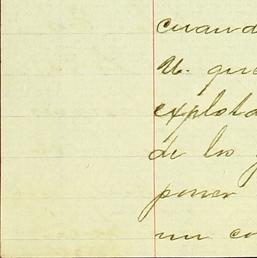 cuand
U. que
explota
de los
poner
un co